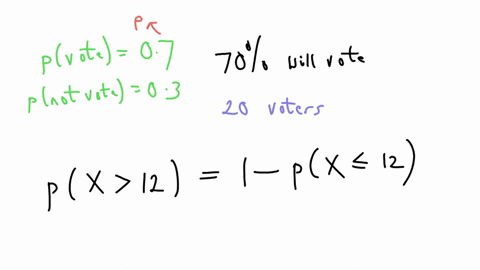 p
p(vote) = 0.7
70% will vote
p(not vote) = 0.3
20 voters
p(X > 12) = 1 - p(X ≤ 12)